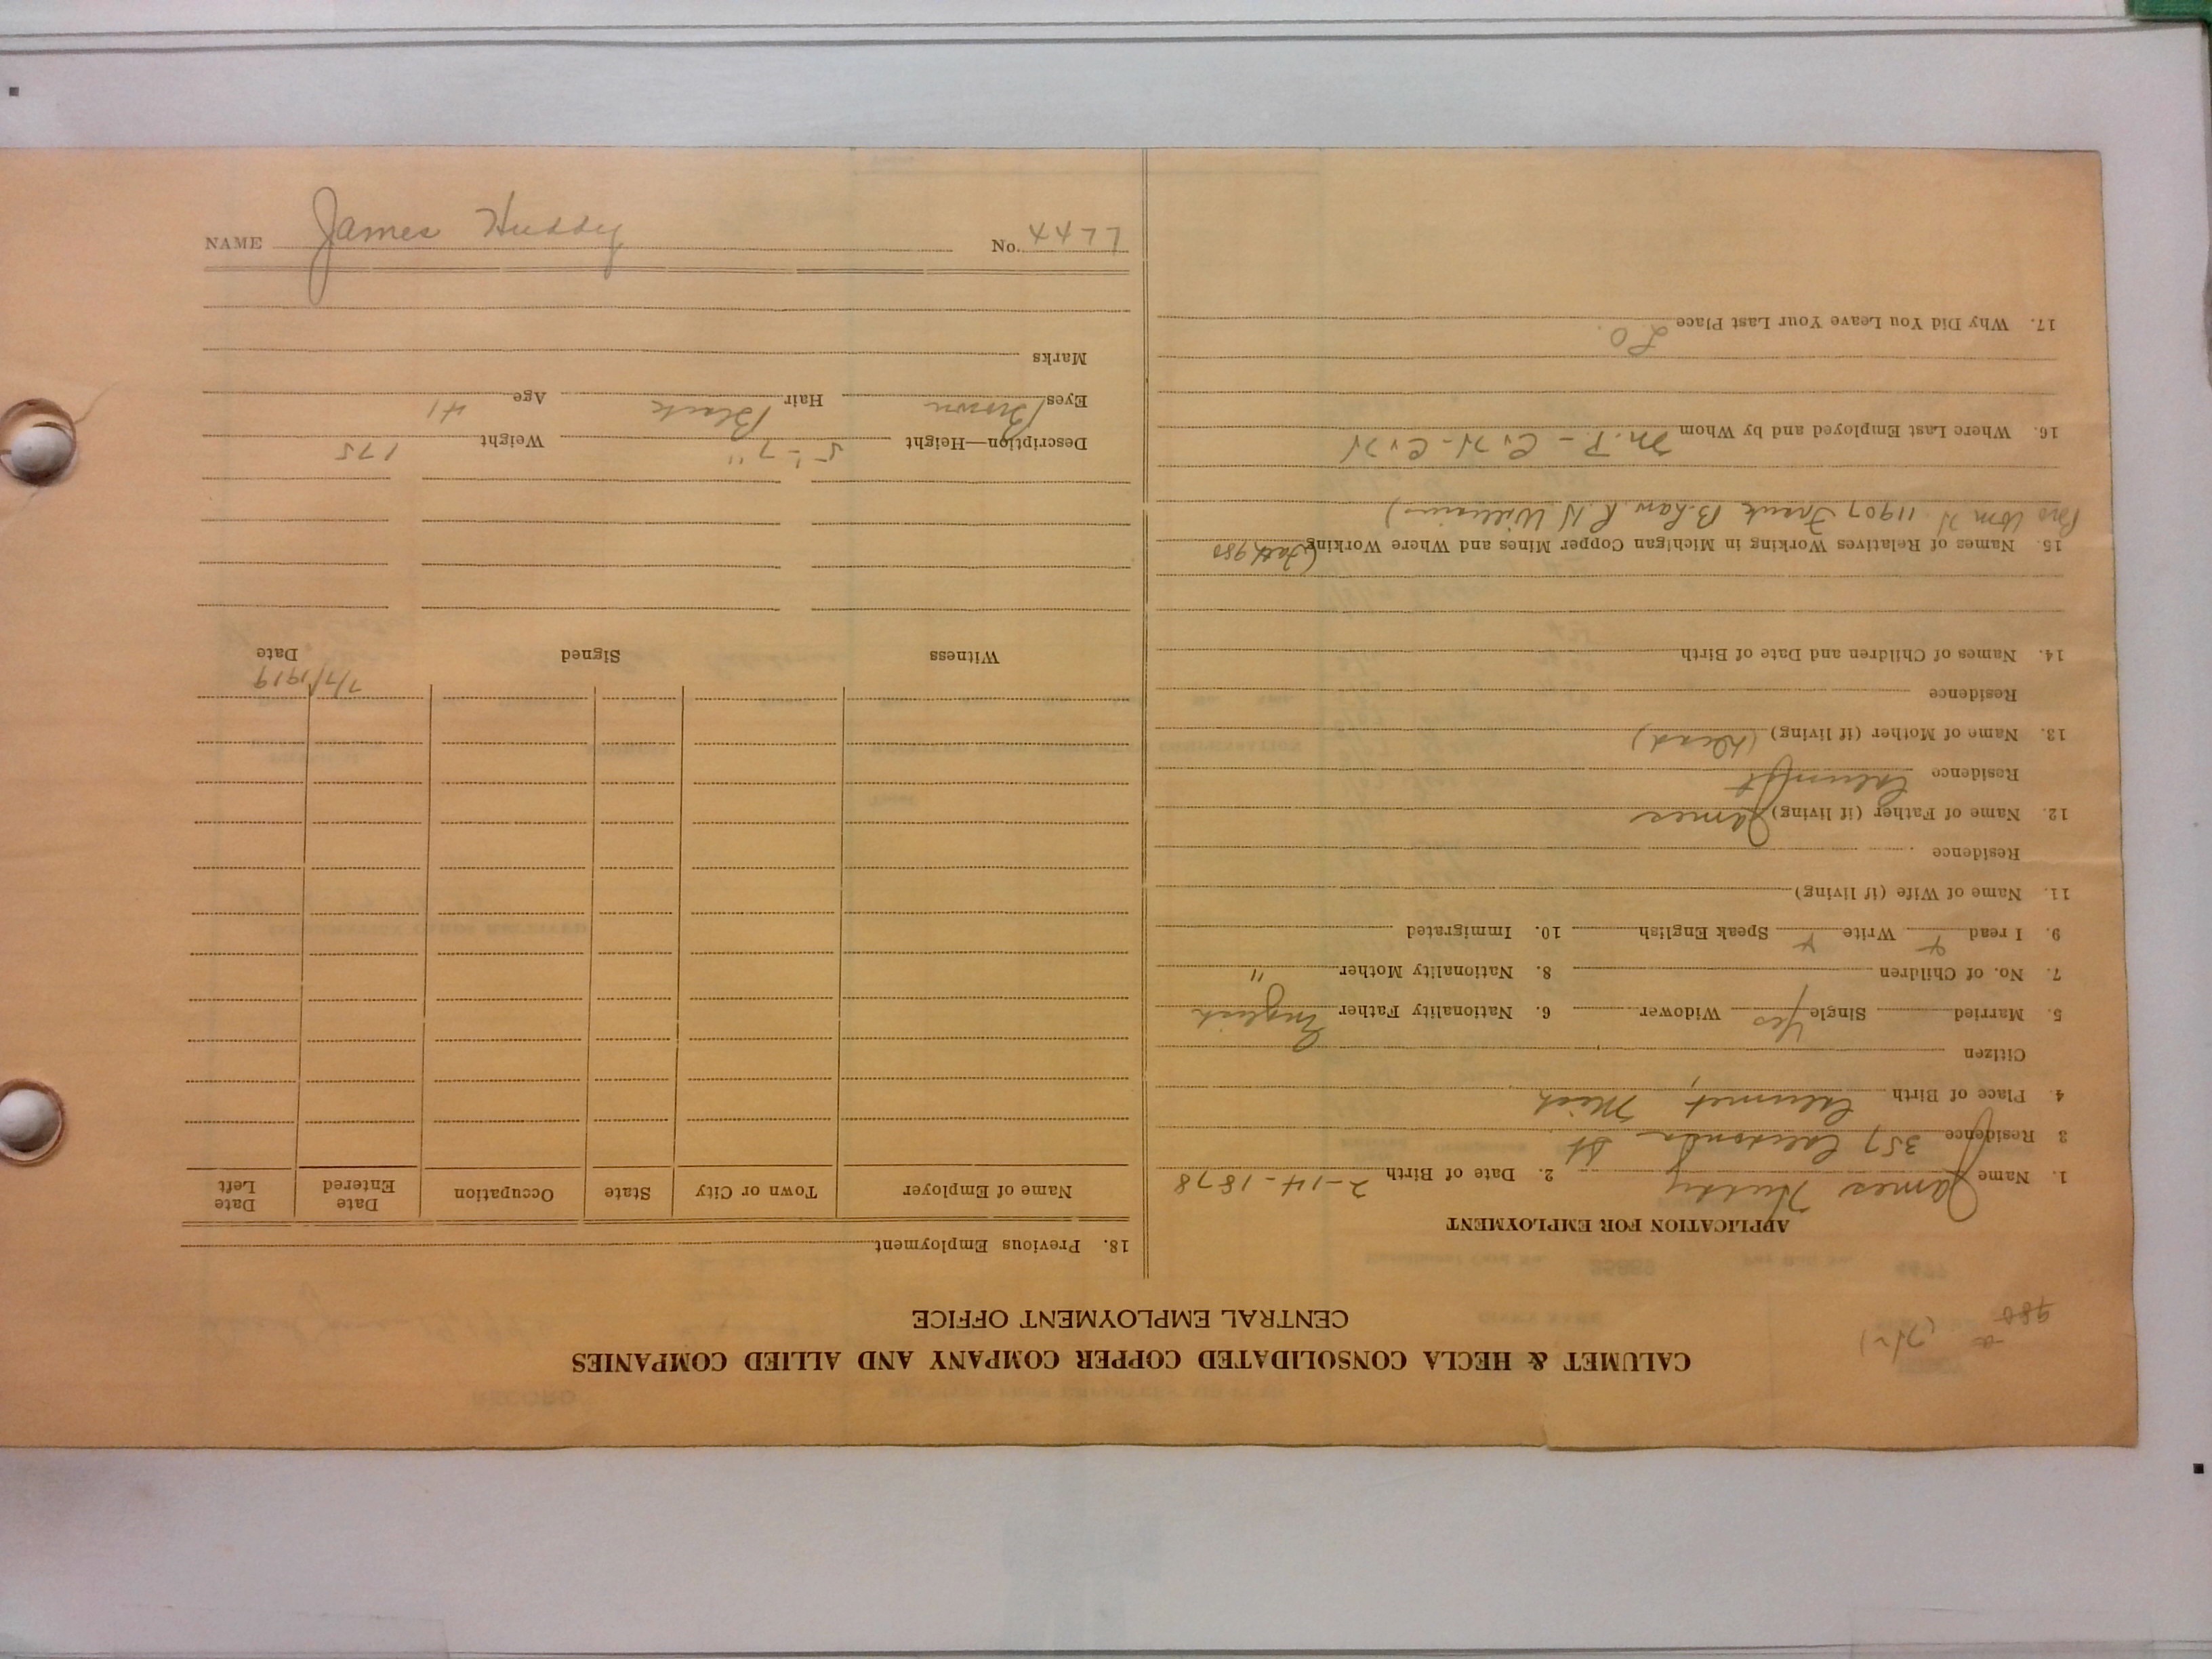 980
CALUMET & HECLA CONSOLIDATED COPPER COMPANY AND ALLIED COMPANIES
CENTRAL EMPLOYMENT OFFICE
APPLICATION FOR EMPLOYMENT
1. Name James Huddy 2. Date of Birth 2-14-1878
3 Residence 357 Caledonia St
4. Place of Birth Calumet, Mich
Citizen
5. Married Single Yes Widower 6. Nationality Father English
7. No. of Children 8. Nationality Mother "
9. I read Write Speak English 10. Immigrated
11. Name of Wife (if living)
Residence
12. Name of Father (if living) James
Residence Calumet
13. Name of Mother (if living) (Dead)
Residence
14. Names of Children and Date of Birth
15. Names of Relatives Working in Michigan Copper Mines and Where Working (Fath 980
Bro Wm H. 11907 Frank B. Law R. H Williams)
16. Where Last Employed and by Whom
17. Why Did You Leave Your Last Place L.O.
18. Previous Employment
Name of Employer Town or City State Occupation Date Entered Date Left
7/7/1919
Witness Signed Date
Description—Height 5'-7" Weight 175
Eyes Brown Hair Black Age 41
Marks
NAME James Huddy No. 4477